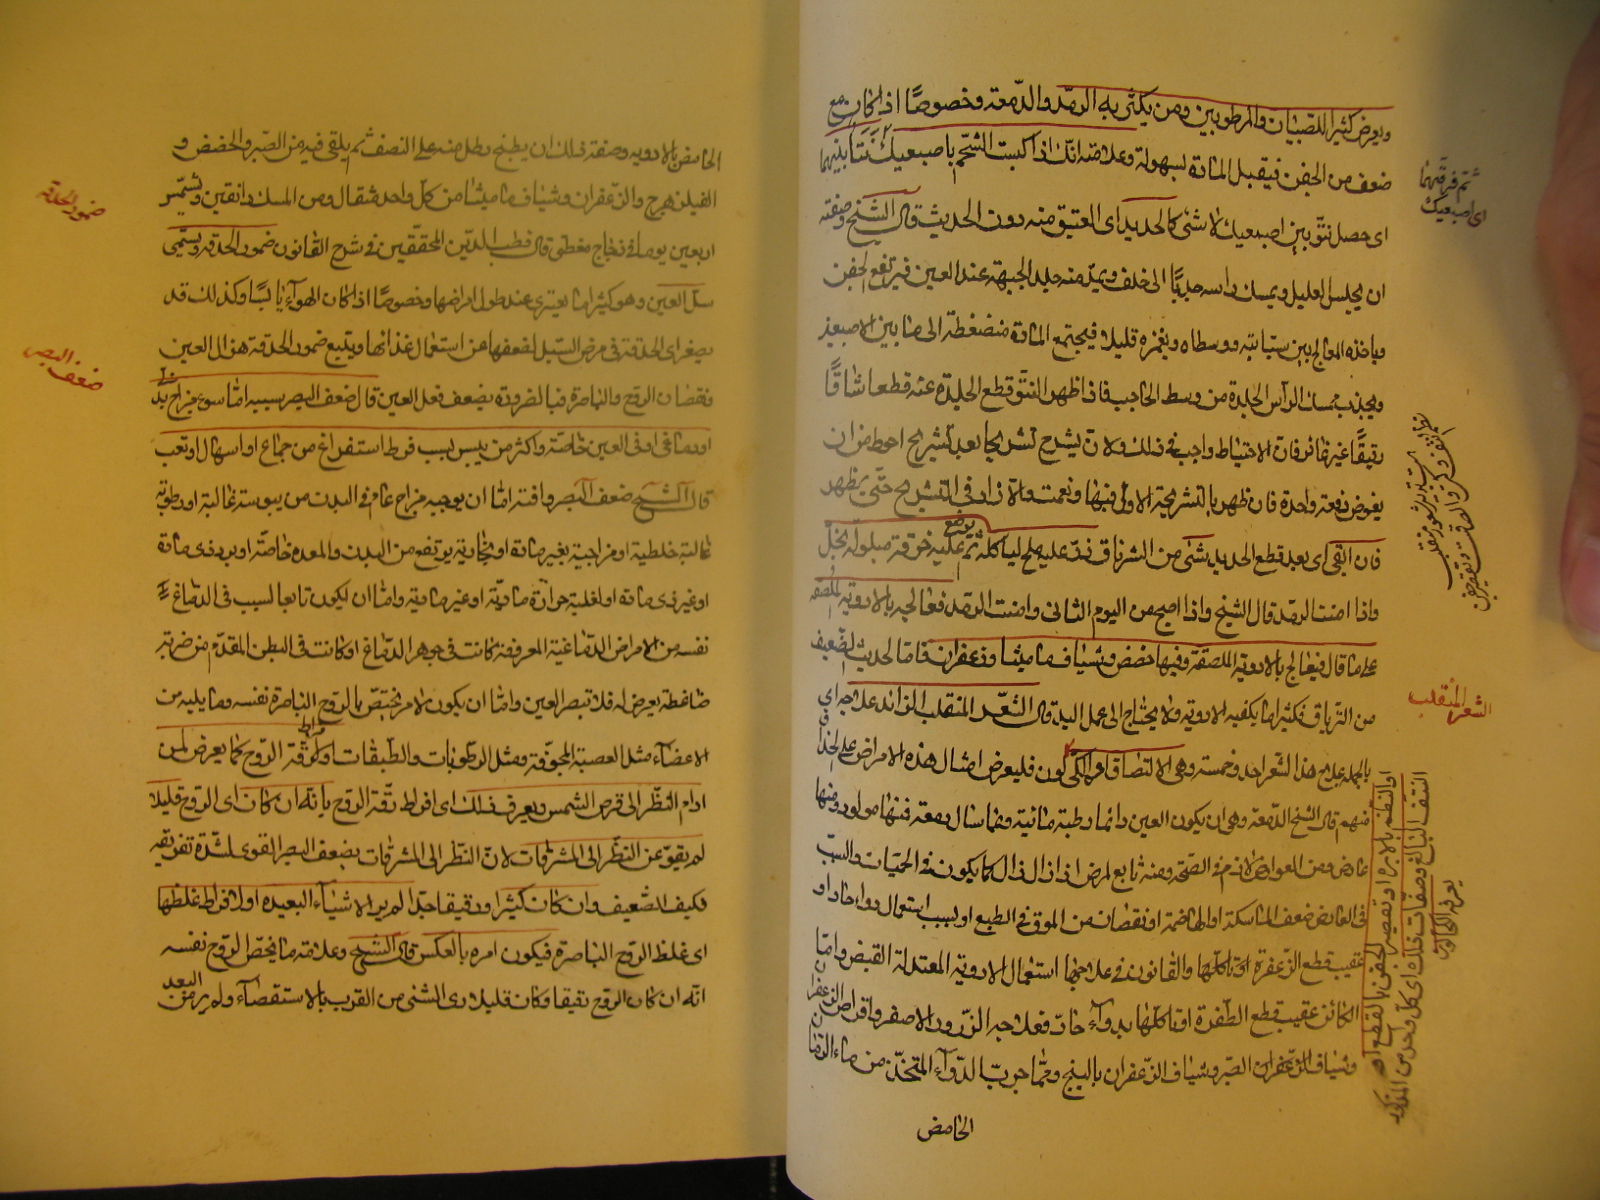 ويعرض كثيرا للصبيان والمرطوبين ومن يكثر به الرمد والدمعة وخصوصا اذا كان مع
ضعف من الجفن فيقبل المادة بسهولة وعلامته انك اذا كبست الشحم باصبعيك نتأ بينهما
ثم فرقتهما
اى اصبعيك
اى حصل نتو بين اصبعيك لا شئ كالحديد اى العتيق منه دون الحديث قال الشيخ وصفته
ان يجلس العليل ويمسك راسه جذبا الى خلف ويمد منه جلد الجبهة عند العين فيرتفع الجفن
وياخذه المعالج بين سبابته ووسطاه ويغمزه قليلا فيجتمع المادة منضغطة الى ما بين الاصبعين
ويجذب ممسك الرأس الجلدة من وسط الحاجب فاذا ظهر النتو قطع الجلدة عنه قطعا شاقا
رقيقا غير غائر فان الاحتياط واجب في ذلك ولان يشرح تشريحا بعد تشريح احوط من ان
يغوص دفعة واحدة فان ظهر بالتشريحة الاولى فبها ونعمت والا زاد في التشريح حتى يظهر
فان بقى اى بعد قطع الحديد شئ من الشرناق ذر عليه ملح لياكله ثم يوضع عليه خرقة مبلولة بخل
واذا امنت الرمد قال الشيخ واذا اصبح من اليوم الثانى وامنت الرمد فعالجه بالادوية الملصقة
على ما قال فيعالج بالادوية الملصقة وفيها حضض وشياف ماميثا وزعفران فاما الحديث الضعيف
من الشرناق فكثيرا ما يكفيه الادوية ولا يحتاج الى عمل اليد قال الشعر المنقلب الزائد علاجه اى
الشعر المنقلب
بالجملة علاج هذا الشعر احد وخمسة وهى الالتصاق والكى
منهم قال الشيخ الدمعة وهى ان يكون العين دائما رطبة مائية وربما سال دمعة فمنها مولود ومنها
عارض ومن العوارض لازم في الصحة ومنه تابع لمرض اذا زال زال كما يكون في الحميات والسبب
في العارض ضعف الماسكة او الهاضمة او نقصان من الموق في الطبع او بسبب استعمال دواء حاد او
عقيب قطع الظفرة او تاكلها والقانون في علاجها استعمال الادوية المعتدلة القبض واما
الكائن عقيب قطع الظفرة او تاكلها بدواء حاد فعلاجه الذرور الاصفر واقراص الزعفران
وشياف الزعفران الصبر وشياف الزعفران بالبنج ومما جرب الدواء المتخذ من ماء الرمان
والنظم بالابرة او تقصير الجفن بالقطع او
النتف البالغ وصفات ذلك اى كل واحد من المذكور
يعرفه الكحالون
الحامض
الحامض بالادوية وصفته ذلك ان يطبخ رطل منه على النصف ثم يلقى فيه من الصبر والحضض و
الفيلزهرج والزعفران وشياف ماميثا من كل واحد مثقال ومن المسك دانقين ويشمس
اربعين يوما في زجاج مغطى قال قطب الدين المحققين في شرح القانون ضمور الحدقة ويسمى
ضمور الحدقة
سل العين وهو كثيرا ما يعترى عند طول امراضها وخصوصا اذا كان الهواء يابسا وكذلك قد
يصغر اى الحدقة في مرض السبل لضعفها عن استعمال غذائها ويتبع ضمور الحدقة هزال العين
ضعف البصر
ونقصان الروح والباصرة فبالضرورة يضعف فعل العين قال ضعف البصر سببه اما سوء مزاج
او دماغى او في العين خاصة واكثره من يبس بسبب فرط استفراغ من جماع او اسهال او تعب
قال الشيخ ضعف البصر وافته اما ان يوجبه مزاج عام في البدن من يبوسة غالبة او رطوبة
غالبة خلطية او مزاجية بغير مادة او بخارية يرتفع من البدن والمعدة خاصة او برد ذى مادة
او غير ذى مادة او لغلبة حرارة مادية او غير مادية واما ان يكون تابعا لسبب في الدماغ
نفسه من الامراض الدماغية المعروفة كانت في جوهر الدماغ او كانت في البطن المقدم من ضربة
ضاغطة يعرض له فلا تبصر العين واما ان يكون لامر يختص بالروح الباصرة نفسه وما يليه من
الاعضاء مثل العصبة المجوفة ومثل الرطوبات والطبقات او لرقة الروح كما يعرض لمن
ادام النظر الى قرص الشمس ويعرف ذلك اى افراط رقة الروح بانه ان كان اى الروح قليلا
لم يقو عن النظر الى المشرقات لان النظر الى المشرقات يضعف البصر القوى لشدة تفريقه
فكيف الضعيف وان كان كثيرا ورقيقا جدا لم ير الاشياء البعيدة او لافراط غلظها
اى غلظ الروح الباصرة فيكون امره بالعكس قال الشيخ وعلامة ما يختص الروح نفسه
انه ان كان الروح رقيقا وكان قليلا راى الشئ من القرب بالاستقصاء ولم ير من البعد